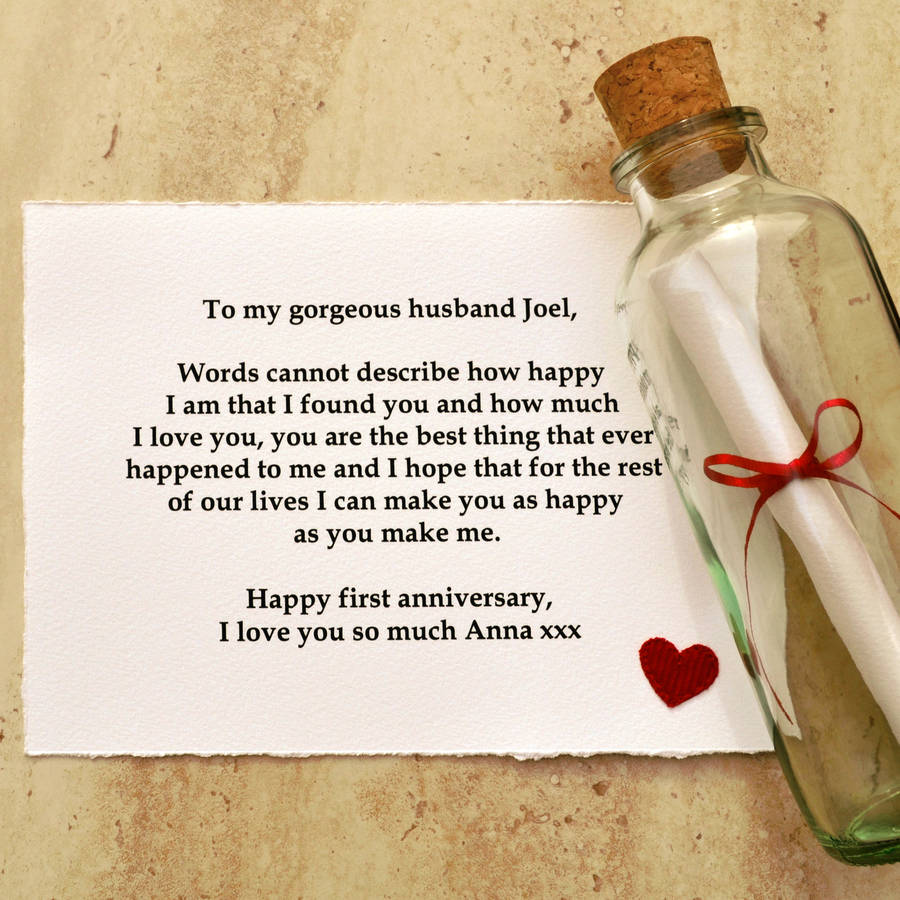 To my gorgeous husband Joel,
Words cannot describe how happy
I am that I found you and how much
I love you, you are the best thing that ever
happened to me and I hope that for the rest
of our lives I can make you as happy
as you make me.
Happy first anniversary,
I love you so much Anna xxx